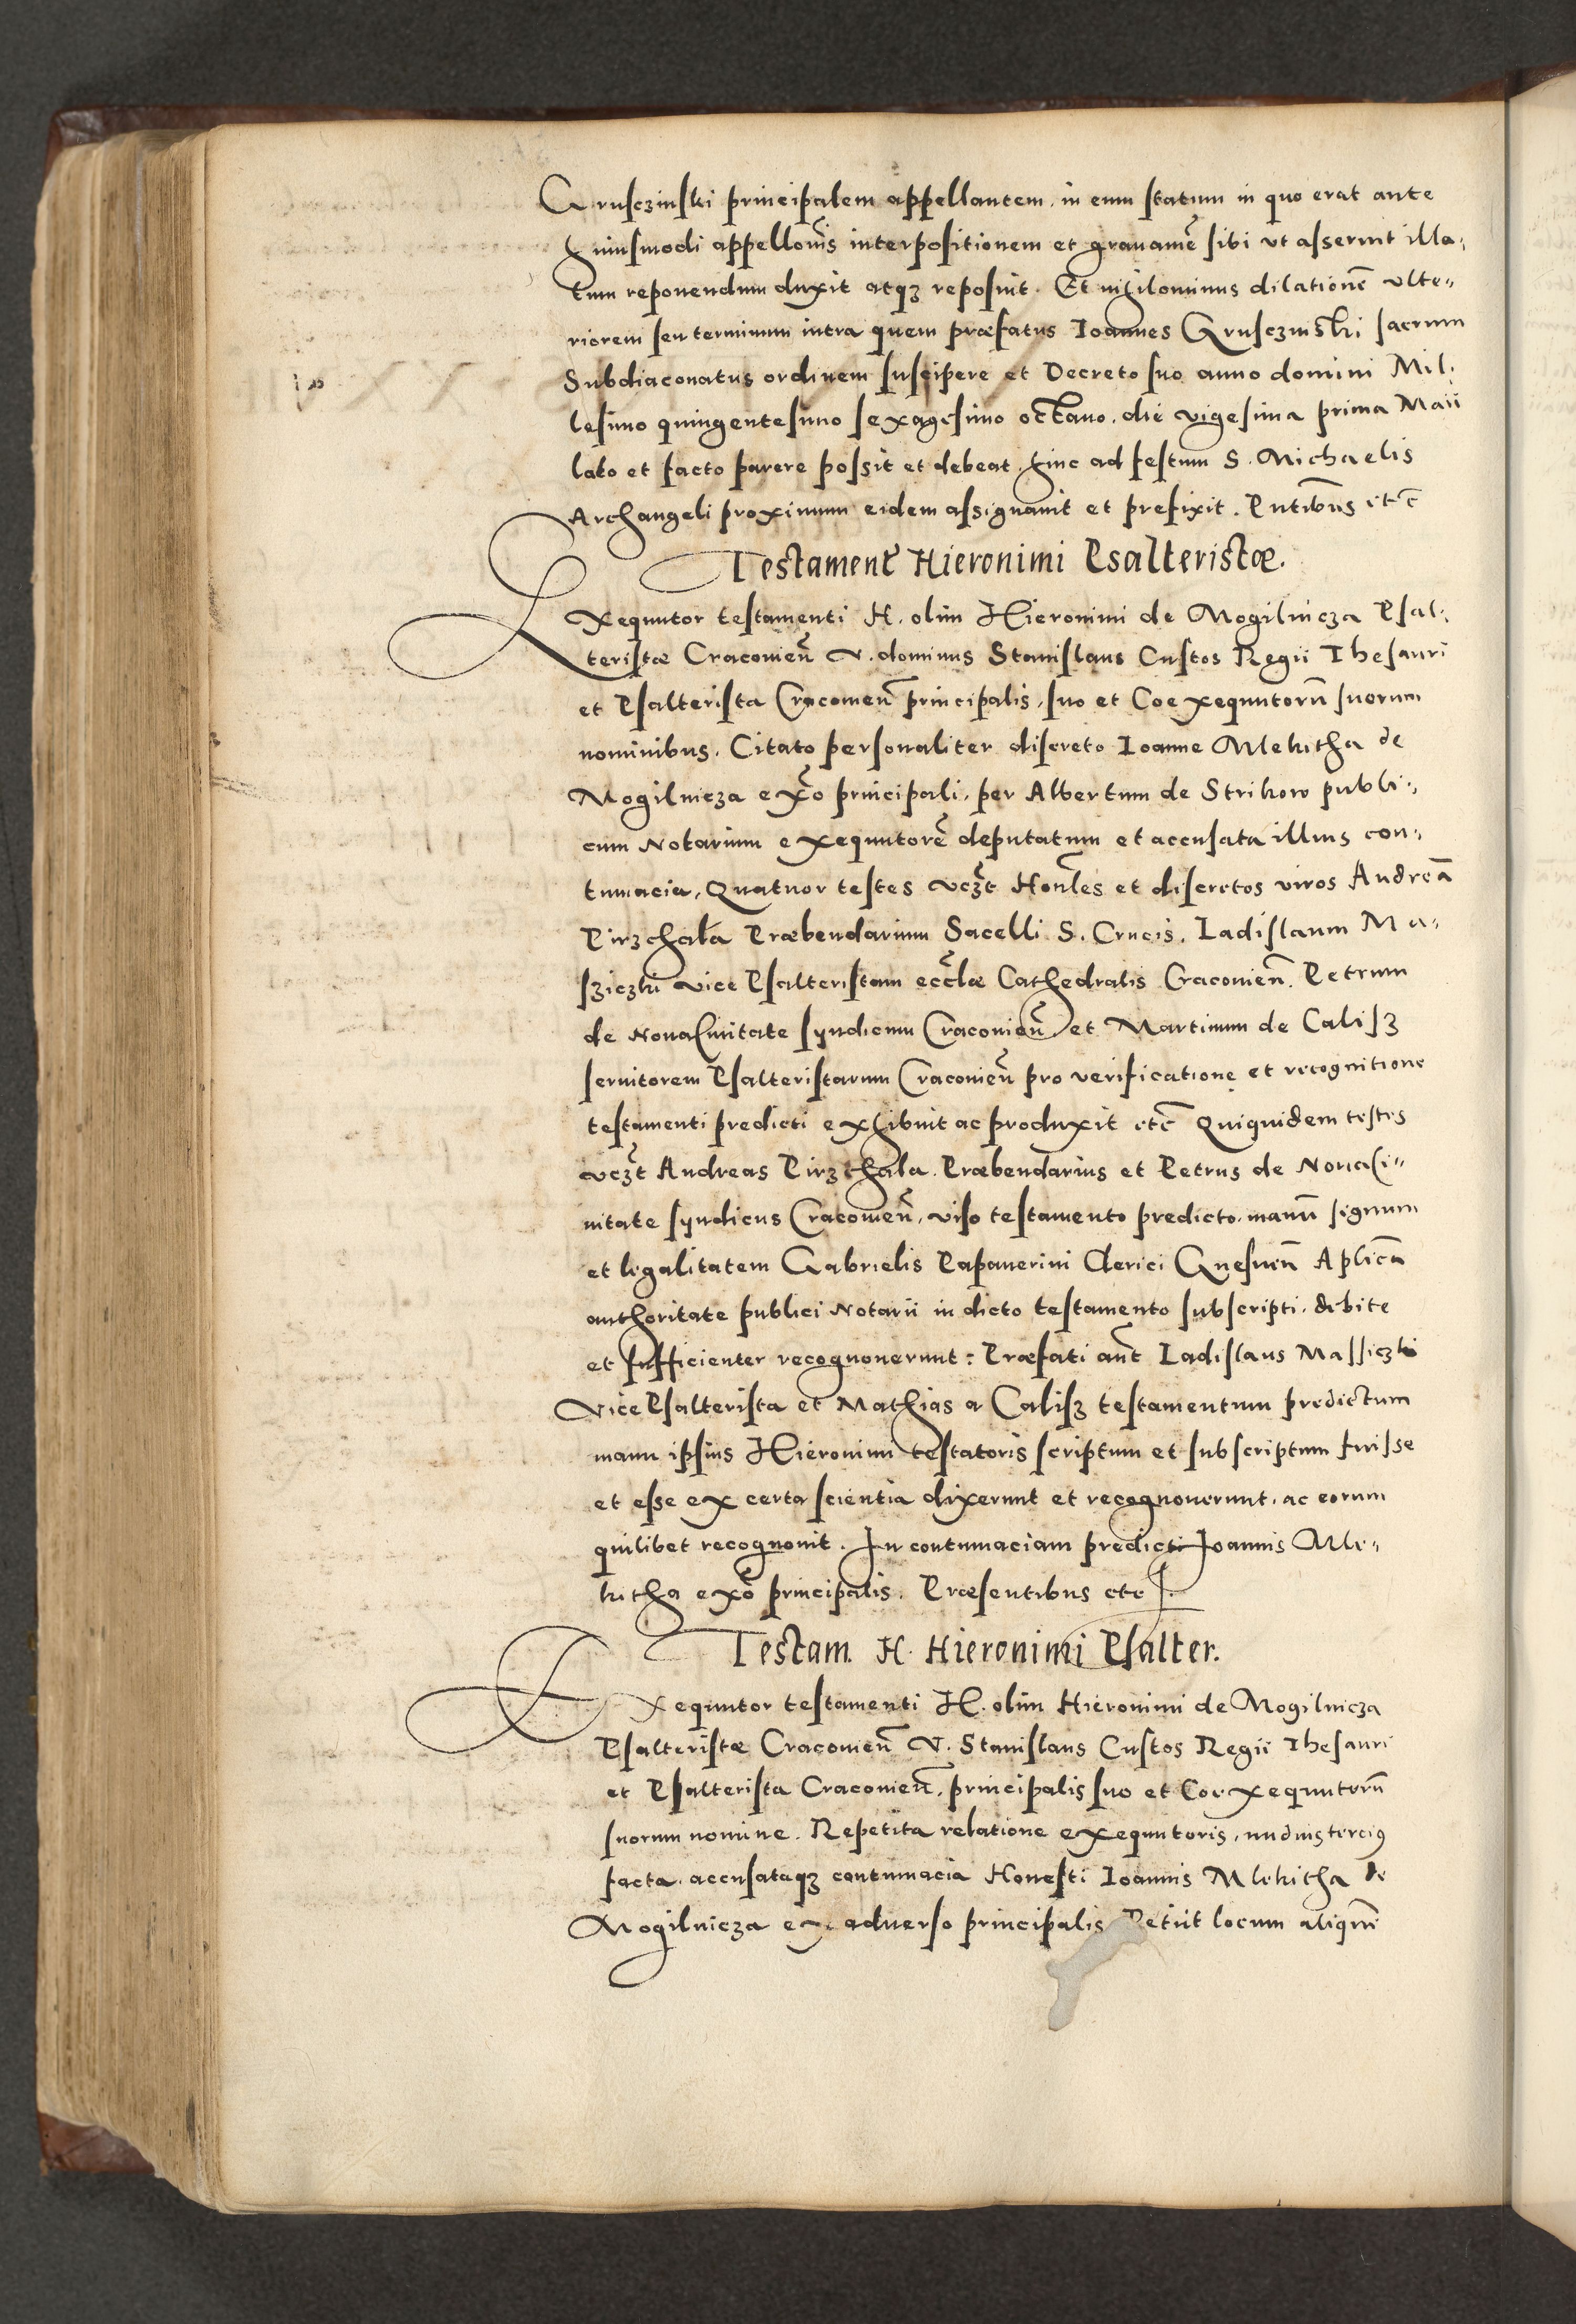 Grusczinski principalem appellantem, in eum statum in quo erat ante
huiusmodi appellonis interpositionem et grauamẽ sibi vt asseruit illa,
tum reponendum duxit atqz reposuit. Et nihilominus dilationẽ vlte„
riorem seu terminum intra quem præfatus Ioannes Grusczinski sacrum
Subdiaconatus ordinem suscipere et Decreto suo anno domini Mil,
lesimo quingentesimo sexagesimo octauo, die vigesima prima Maii
lato et facto parere possit et debeat, hinc ad festum S. Michaelis
Archangeli proximum eidem assignauit et prefixit. Pntibus etc̃
Testament Hieronimi Psalteristæ.
Exequutor testamenti H. olim Hieronimi de Mogilnicza Psal,
teristæ Craconieñ V. dominus Stanislaus Custos Regii Thesauri
et Psalterista Cracouieñ principalis, suo et Coexequutorũ suorum
nominibus. Citato personaliter discreto Ioanne Mlekitha de
Mogilnicza exõ principali, per Albertum de Strikow publi,
cum Notarium exequutorẽ deputatum et accusata illius con,
tumacia, Quatuor testes vczt Honles et discretos viros Andreã
Pirzchala Præbendarium Sacelli S. Crucis, Ladislaum Ma,
sziczki Vice Psalteristam ecclæ Cathedralis Cracouieñ. Petrum
de Nouaciuitate syndicum Cracouieñ et Martinum de Calisz
seruitorem Psalteristarum Cracouieñ pro verificatione et recognitione
testamenti predicti exhibuit ac produxit etc̃ Quiquidem testes
vczt Andreas Pirzchala Præbendarius et Petrus de Nouaci„
uitate syndicus Cracouieñ, viso testamento predicto, manũ signum
et legalitatem Gabrielis Papauerini Clerici Gnesneñ Aplicã
authoritate publici Notarii in dicto testamento subscripti, debite
et sufficienter recognouerunt: Præfati aũt Ladislaus Massiczki
Vice Psalterista et Mathias a Calisz testamentum predictum
manu ipsius Hieronimi testatoris scriptum et subscriptum fuisse
et esse ex certa scientia dixerunt et recognouerunt, ac eorum
quilibet recognouit. In contumaciam predicti Ioannis Mle,
kitha exõ principalis. Præsentibus etc
Testam. H. Hieronimi Psalter.
Exequutor testamenti H. olim Hieronimi de Mogilnicza
Psalteristæ Cracouieñ V. Stanislaus Custos Regii Thesauri
et Psalterista Cracouieñ, principalis suo et Coexequutorũ
suorum nomine. Repetita relatione exequutoris, nudiustercius
facta, accusataqz contumacia Honesti Ioannis Mlekitha de
Mogilnicza ex aduerso principalis Petiit locum aliquẽ